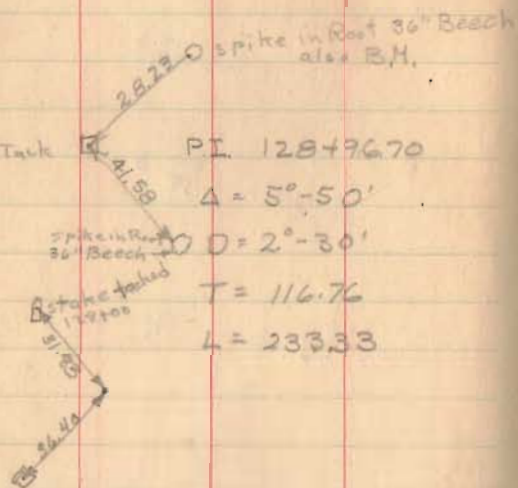 spike in Root 36" Beech
also B.M.
28.23
Tack
P.I. 128+96.70
41.58
Δ = 5°-50'
spike in Root
36" Beech
D = 2°-30'
stake tacked
128+00
T = 116.76
L = 233.33
36.40